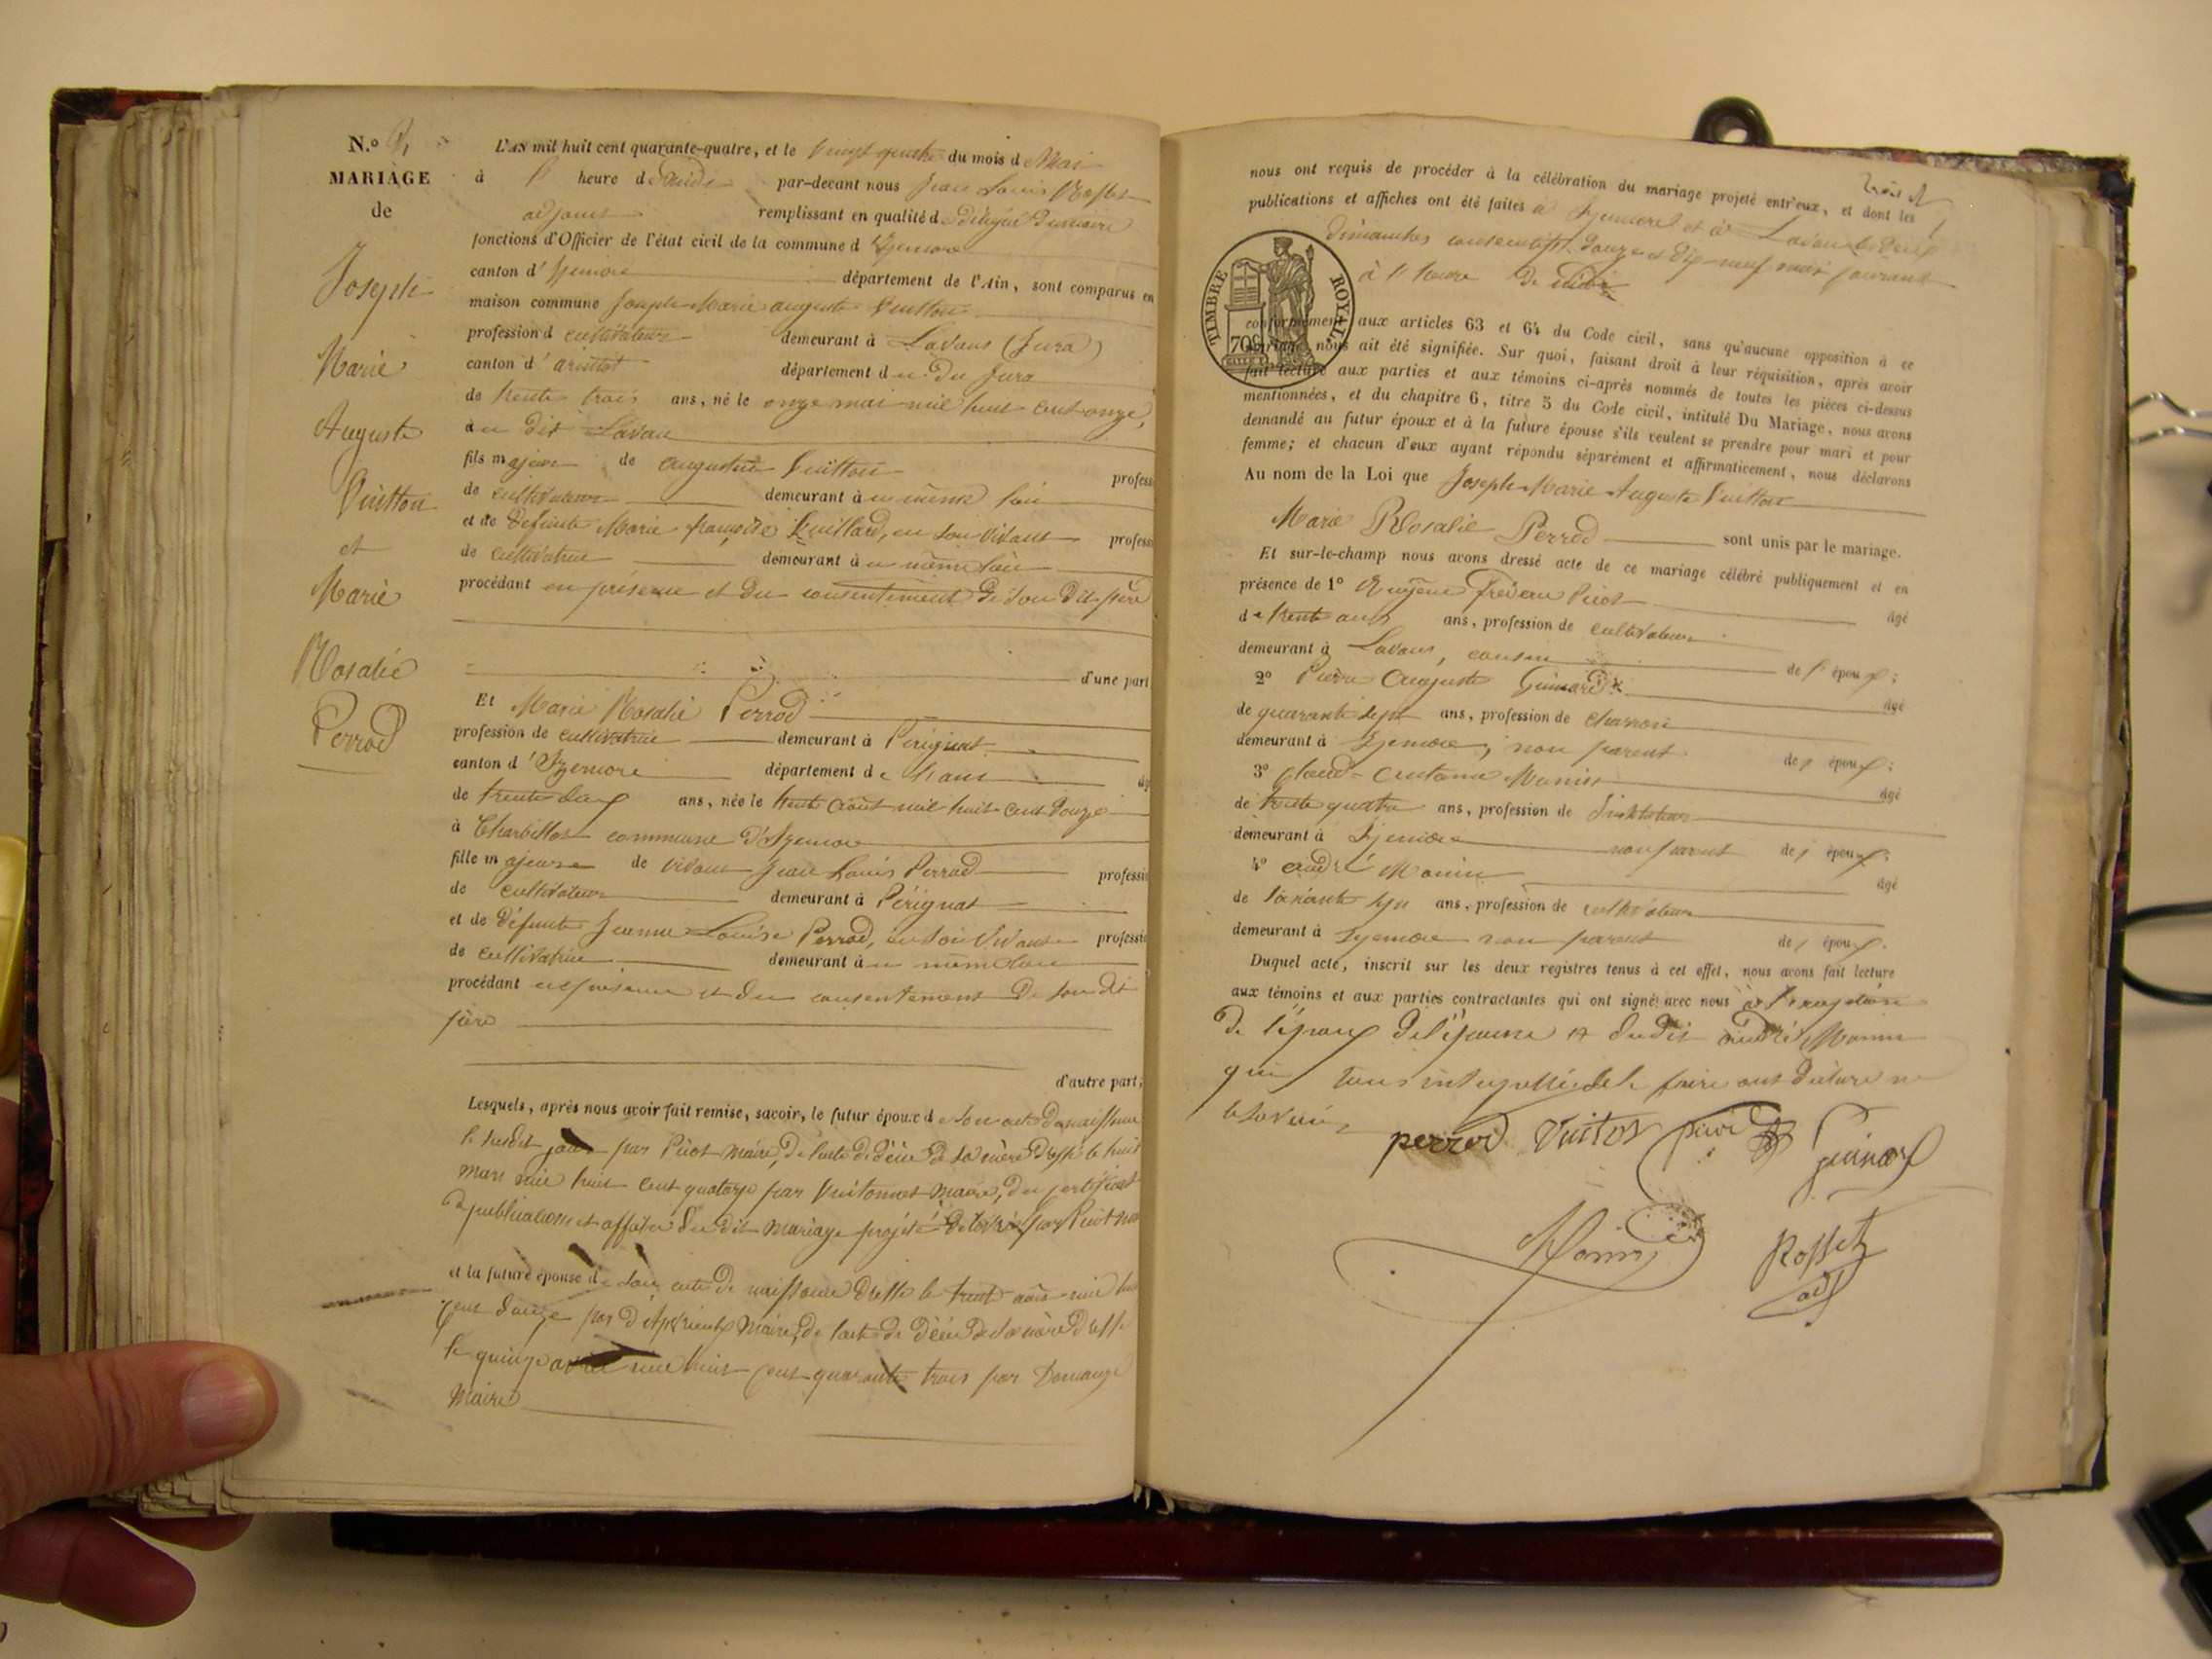 N.º
MARIAGE
de
Joseph
Marie
Auguste
Vuitton
et
Marie
Rosalie
Perrod
L'AN mil huit cent quarante-quatre, et le vingt quatre du mois de Mai
à l' heure de midi par-devant nous Jean Louis Rosset
adjoint remplissant en qualité de délégué du maire
fonctions d'Officier de l'état civil de la commune d'Izernore
canton d'Izernore département de l'Ain, sont comparus en
maison commune Joseph Marie auguste Vuitton
profession de cultivateur demeurant à Lavans (Jura)
canton d' département du Jura
de trente trois ans, né le onze mai mil huit cent onze,
au dit Lavans
fils majeur de augustin Vuitton profess
de cultivateur demeurant au même lieu
et de défunte Marie françoise Vuillard, en son vivant profess
de cultivatrice demeurant au même lieu
procédant en présence et du consentement de son dit père
d'une part
Et Marie Rosalie Perrod
profession de cultivatrice demeurant à Pérignat
canton d'Izernore département de l'ain
de trente deux ans, née le trente août mil huit cent douze
à Charbillat commune d'Izernore
fille majeure de vivant Jean Louis Perrod professio
de cultivateur demeurant à Pérignat
et de défunte Jeanne Louise Perrod, en son vivant professio
de cultivatrice demeurant au même lieu
procédant en présence et du consentement de son dit
père
d'autre part;
Lesquels, après nous avoir fait remise, savoir, le futur époux de son acte de naissance
le susdit jour par Picot maire, de l'acte de décès de sa mère dressé le huit
mars mil huit cent quatorze par Vuitonnet maire, du certificat
de publications et affiches du dit mariage projeté délivré par Picot
et la future épouse de son acte de naissance dressé le trente août mil huit
cent douze par maire, de l'acte de décès de sa mère dressé
le quinze avril mil huit cent quarante trois par Domange
Maire
nous ont requis de procéder à la célébration du mariage projeté entr'eux, et dont les
publications et affiches ont été faites à Izernore et à Lavans les
dimanches consécutifs douze et dix-neuf mai courant
à l'heure de midi
TIMBRE ROYAL
conformément aux articles 63 et 64 du Code civil, sans qu'aucune opposition à ce
mariage nous ait été signifiée. Sur quoi, faisant droit à leur réquisition, après avoir
fait lecture aux parties et aux témoins ci-après nommés de toutes les pièces ci-dessus
mentionnées, et du chapitre 6, titre 5 du Code civil, intitulé Du Mariage, nous avons
demandé au futur époux et à la future épouse s'ils veulent se prendre pour mari et pour
femme; et chacun d'eux ayant répondu séparément et affirmativement, nous déclarons
Au nom de la Loi que Joseph Marie Auguste Vuitton
Marie Rosalie Perrod sont unis par le mariage.
Et sur-le-champ nous avons dressé acte de ce mariage célébré publiquement et en
présence de 1º Picot âgé
de trente ans, profession de cultivateur
demeurant à Lavans, cousin de l'époux;
2º Pierre Auguste Guinard âgé
de quarante sept ans, profession de charron
demeurant à Izernore, non parent des époux;
3º Claude Antoine Monin âgé
de trente quatre ans, profession de instituteur
demeurant à Izernore non parent des époux;
4º andré Monin âgé
de soixante sept ans, profession de cultivateur
demeurant à Izernore non parent des époux.
Duquel acte, inscrit sur les deux registres tenus à cet effet, nous avons fait lecture
aux témoins et aux parties contractantes qui ont signé avec nous à l'exception
de l'époux de l'épouse et dudit andré Monin
qui tous interpellés de le faire ont déclaré ne
le savoir
perrod Vuiton picot Guinard
Monin Rosset
adj